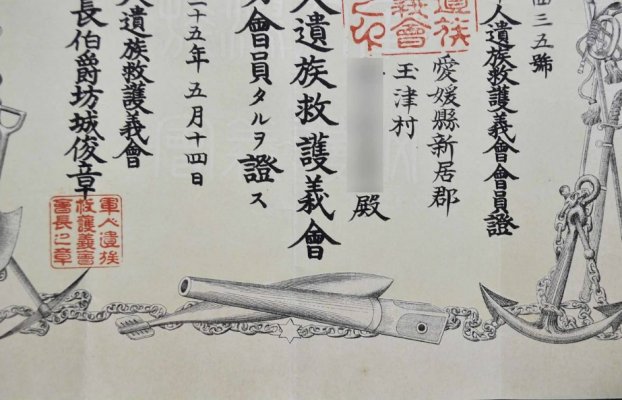 五號
人遺族救護義會會員證
愛媛縣新居郡
玉津村
殿
人遺族救護義會
會員タルヲ證ス
十五年五月十四日
人遺族救護義會
長伯爵坊城俊章
軍人遺族
救護義會
會長之章
遺族
義會
之印